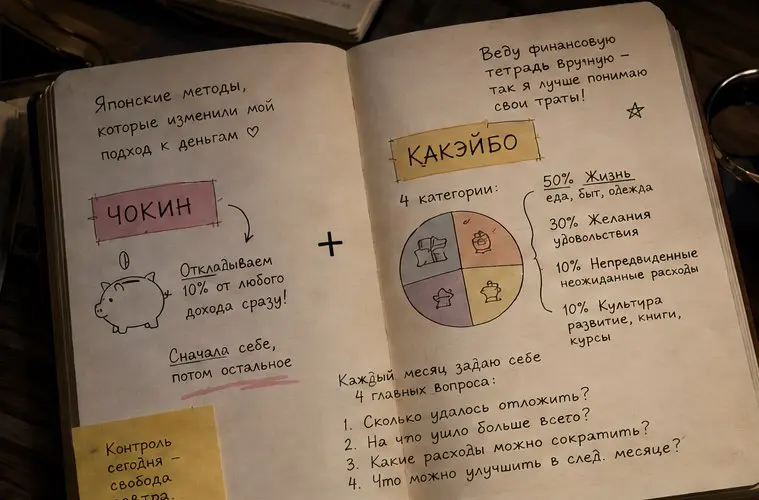 Японские методы,
которые изменили мой
подход к деньгам ♡
ЧОКИН
Откладываем
10% от любого
дохода сразу!
Сначала себе,
потом остальное
Контроль
сегодня –
свобода
завтра.
+
Веду финансовую
тетрадь вручную –
так я лучше понимаю
свои траты!
КАКЭЙБО
4 категории:
50% Жизнь
еда, быт, одежда
30% Желания
удовольствия
10% Непредвиденные
неожиданные расходы
10% Культура
развитие, книги,
курсы
Каждый месяц задаю себе
4 главных вопроса:
1. Сколько удалось отложить?
2. На что ушло больше всего?
3. Какие расходы можно сократить?
4. Что можно улучшить в след. месяце?